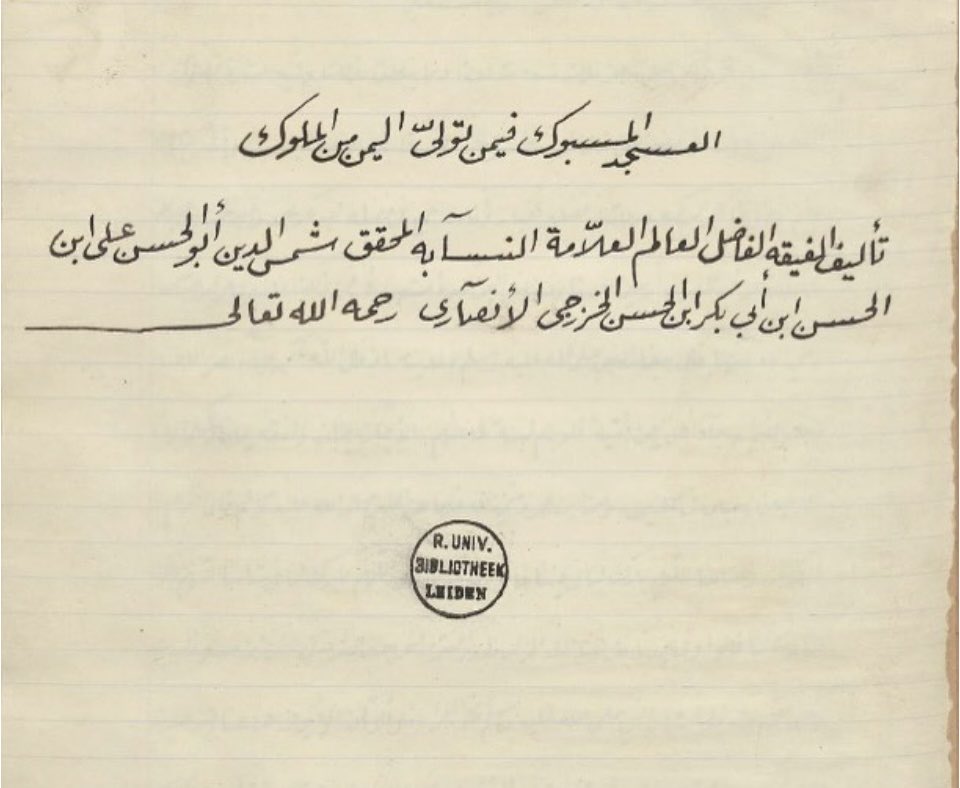 العسجد المسبوك فيمن تولىّ اليمن من الملوك
تأليف الفيقه الفاضل العالم العلاّمة النسآبه المحقق شمس الدين أبو الحسن على ابن
الحسن ابن أبي بكر ابن الحسن الخزرجى الأنصآرى رحمه الله تعالى
R. UNIV.
BIBLIOTHEEK
LEIDEN